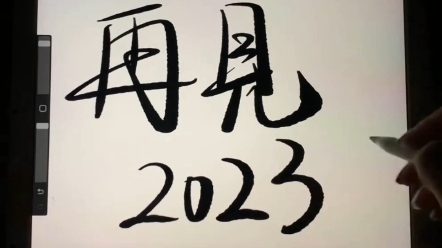 再見
2023